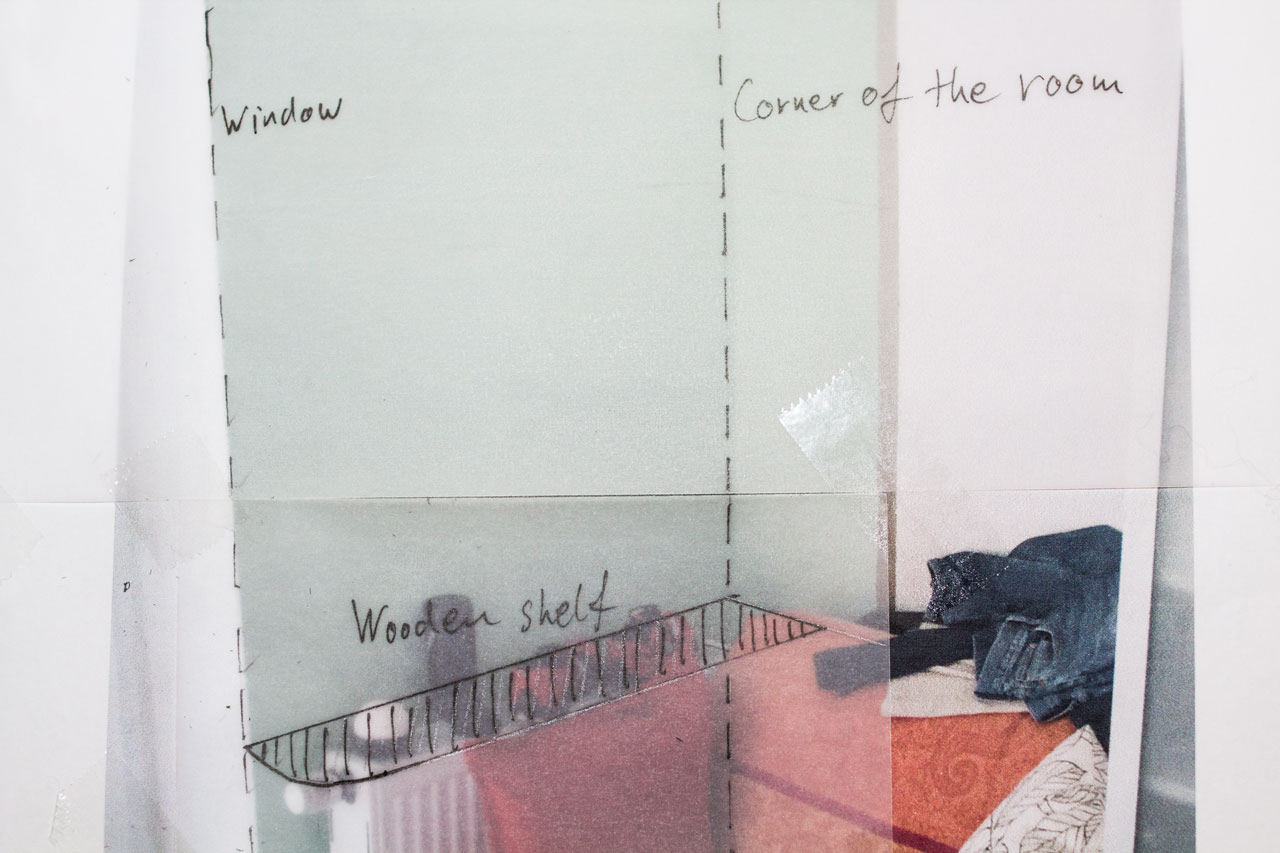 Window
Corner of the room
Wooden shelf